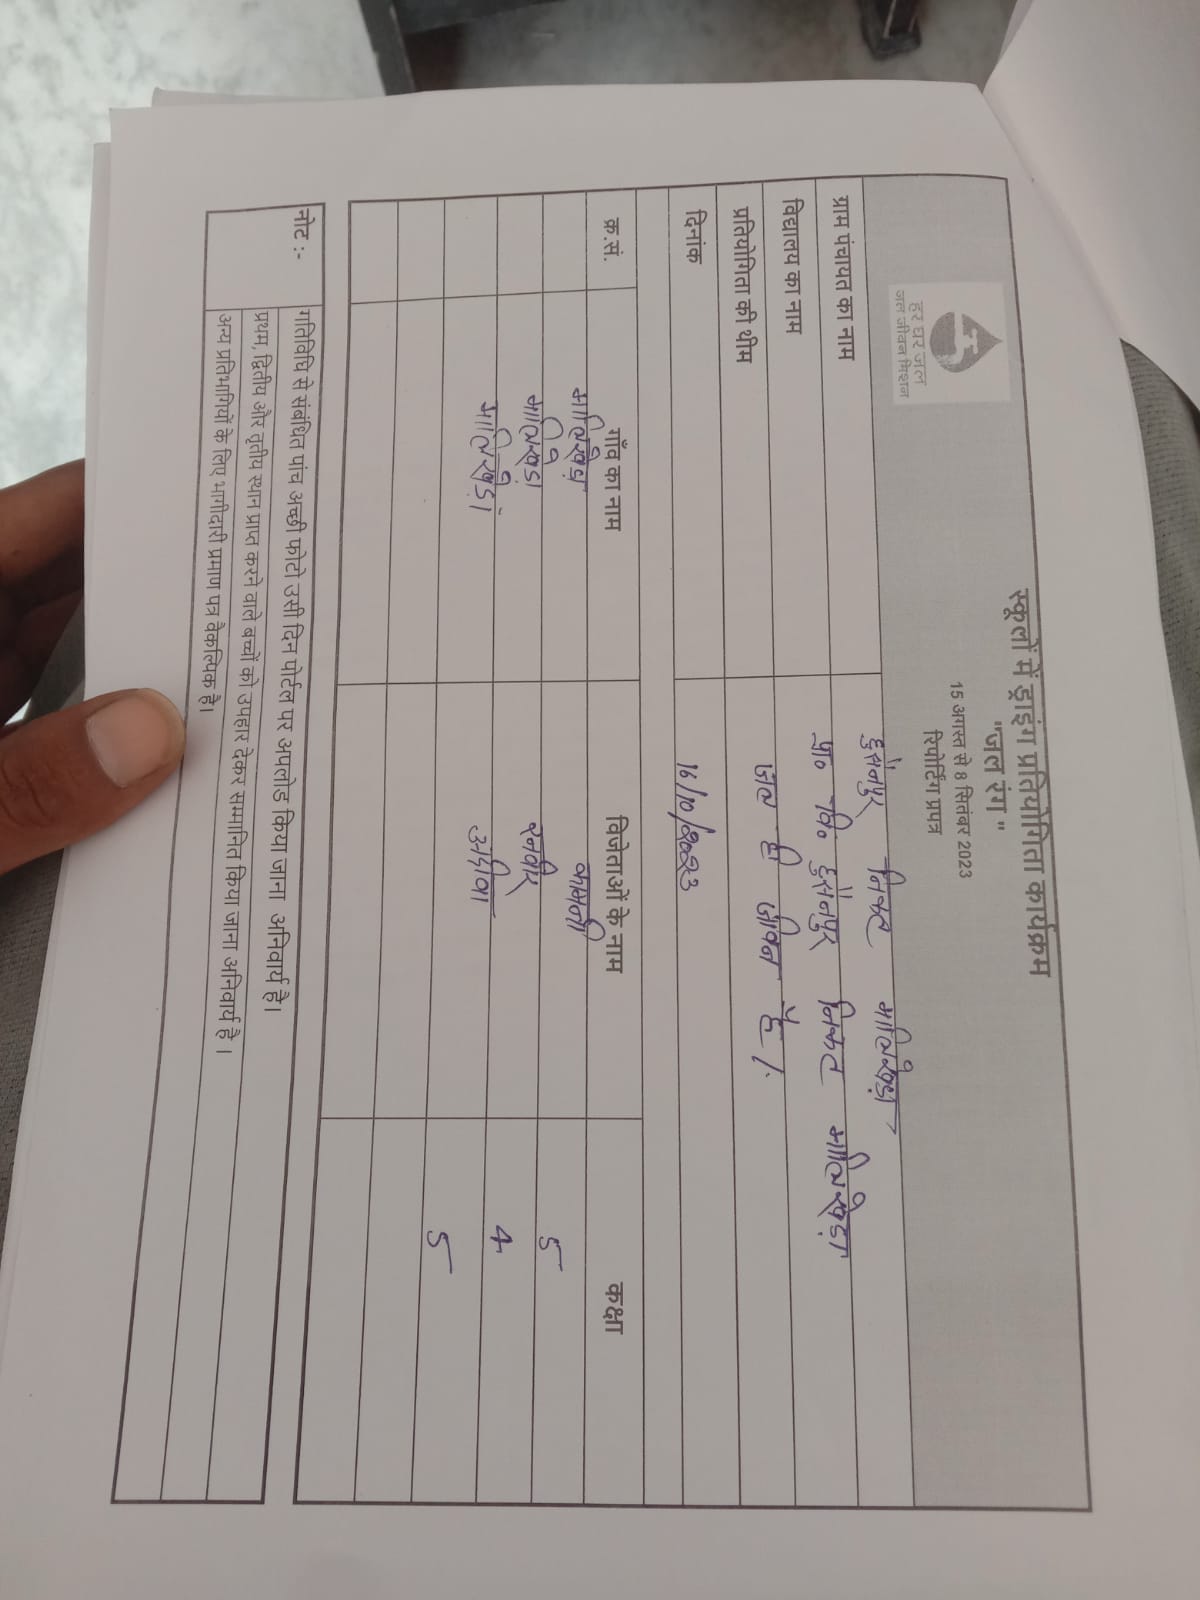 हर घर जल
जल जीवन मिशन
स्कूलों में ड्राइंग प्रतियोगिता कार्यक्रम
"जल रंग"
15 अगस्त से 8 सितंबर 2023
रिपोर्टिंग प्रपत्र
ग्राम पंचायत का नाम हुसैनपुर निकट भालिखेड़ा
विद्यालय का नाम प्रा० वि० हुसैनपुर निकट भालिखेड़ा
प्रतियोगिता की थीम जल ही जीवन है।
दिनांक 16/10/2023
क्र.सं. गाँव का नाम विजेताओं के नाम कक्षा
भालिखेड़ा 5
भालिखेड़ा 4
भालिखेड़ा 5
नोट :- गतिविधि से संबंधित पांच अच्छी फोटो उसी दिन पोर्टल पर अपलोड किया जाना अनिवार्य है।
प्रथम, द्वितीय और तृतीय स्थान प्राप्त करने वाले बच्चों को उपहार देकर सम्मानित किया जाना अनिवार्य है।
अन्य प्रतिभागियों के लिए भागीदारी प्रमाण पत्र वैकल्पिक है।